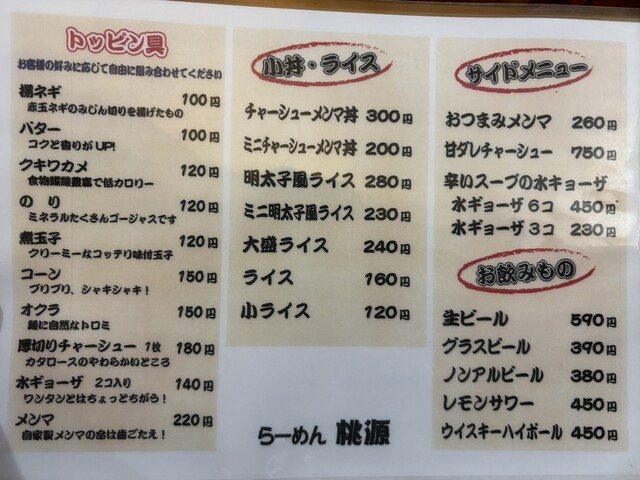 トッピン具
お客様の好みに応じて自由に組み合わせてください
揚ネギ 100円
赤玉ネギのみじん切りを揚げたもの
バター 100円
コクと香りがUP!
クキワカメ 120円
食物繊維豊富で低カロリー
のり 120円
ミネラルたくさんゴージャスです
煮玉子 120円
クリーミーなコッテリ味付玉子
コーン 150円
プリプリ、シャキシャキ!
オクラ 150円
麺に自然なトロミ
厚切りチャーシュー 1枚 180円
カタロースのやわらかいところ
水ギョーザ 2コ入り 140円
ワンタンとはちょっとちがう!
メンマ 220円
自家製メンマの命は歯ごたえ!
小丼・ライス
チャーシューメンマ丼 300円
ミニチャーシューメンマ丼 200円
明太子風ライス 280円
ミニ明太子風ライス 230円
大盛ライス 240円
ライス 160円
小ライス 120円
らーめん 桃源
サイドメニュー
おつまみメンマ 260円
甘ダレチャーシュー 750円
辛いスープの水ギョーザ
水ギョーザ 6コ 450円
水ギョーザ 3コ 230円
お飲みもの
生ビール 590円
グラスビール 390円
ノンアルビール 380円
レモンサワー 450円
ウイスキーハイボール 450円